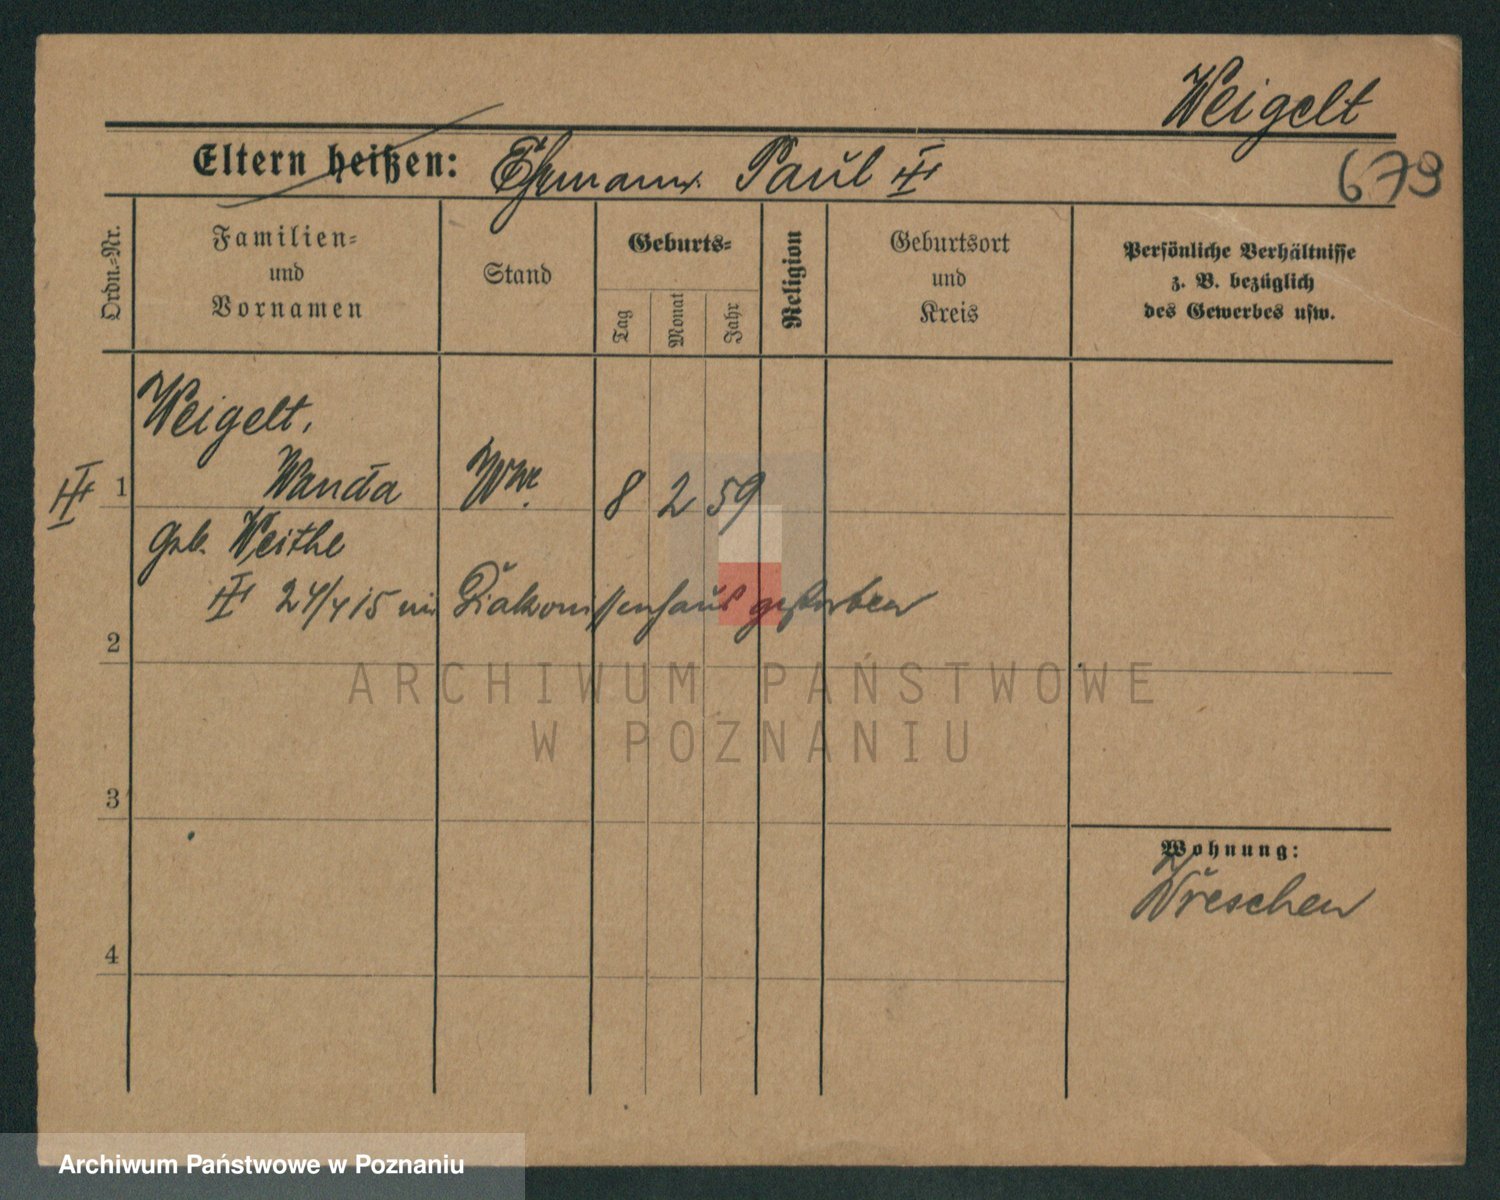 Weigelt
Eltern heißen: Ehemann Paul
679
Ordn.-Nr.
Familien-
und
Vornamen
Stand
Geburts-
Tag
Monat
Jahr
Religion
Geburtsort
und
Kreis
Persönliche Verhältnisse
z. B. bezüglich
des Gewerbes usw.
Weigelt,
1 Wanda Ww. 8 2 59
geb. Weithe
24/4 15 im Diakonissenhaus gestorben
2
ARCHIWUM PAŃSTWOWE
W POZNANIU
3
Wohnung:
Wreschen
4
Archiwum Państwowe w Poznaniu